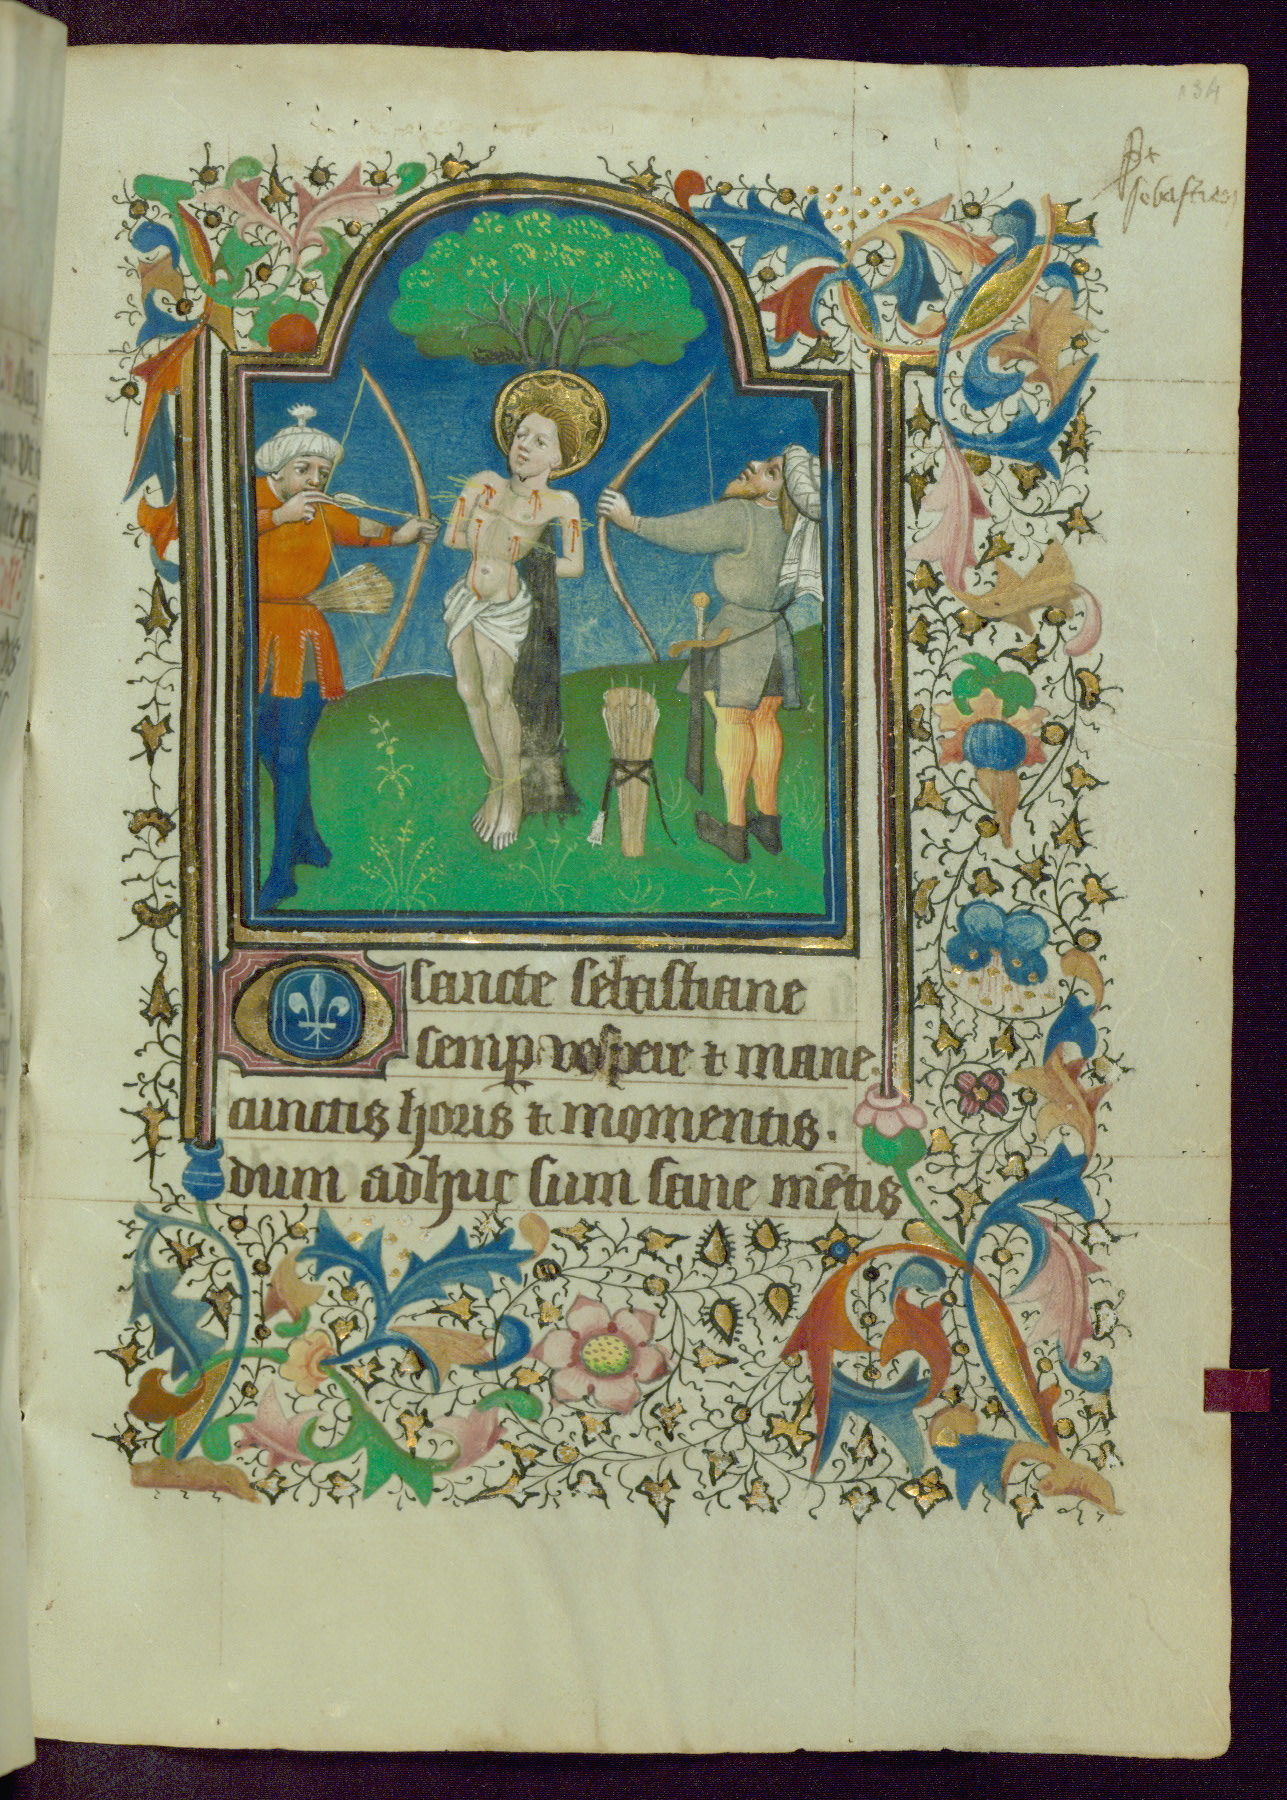 134
sebastien
O sancte sebastiane
semp vespere ⁊ mane.
cunctis horis ⁊ momentis.
dum adhuc sum sane mētis